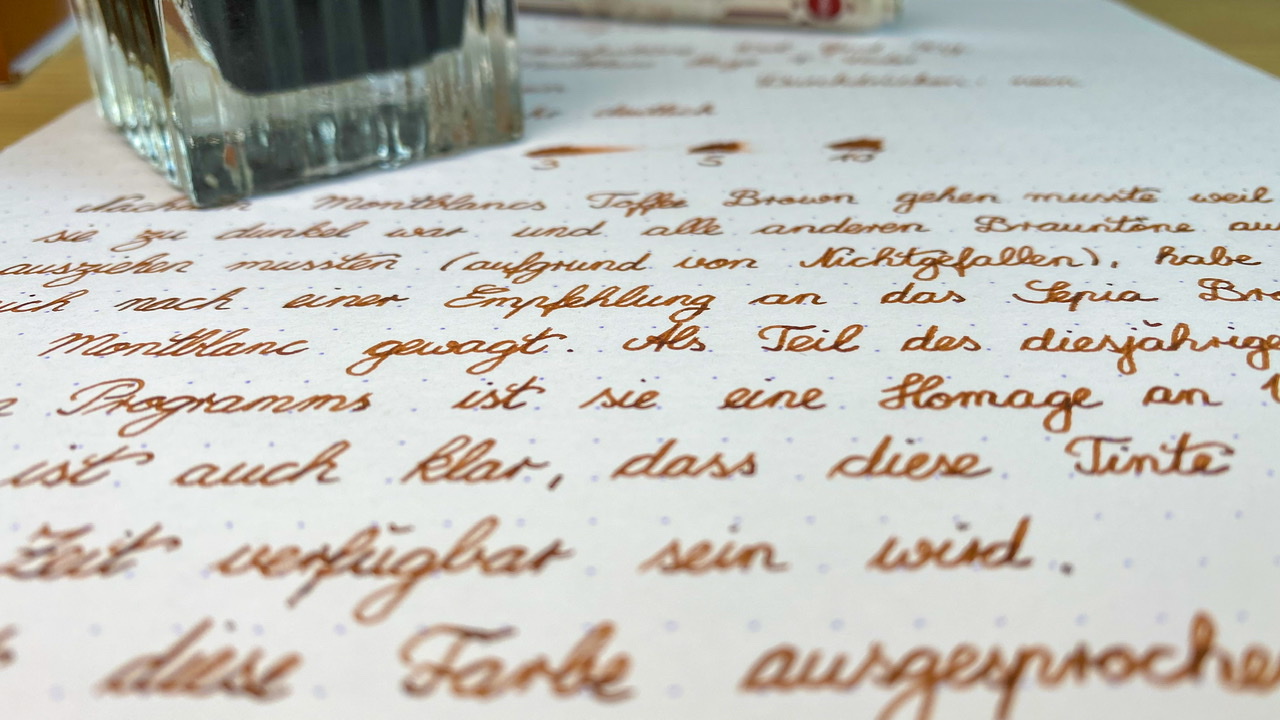 deutlich
3 5 10
Nachdem Montblancs Toffee Brown gehen musste weil
sie zu dunkel war und alle anderen Brauntöne
ausziehen mussten (aufgrund von Nichtgefallen), habe
ich nach einer Empfehlung an das Sepia
Montblanc gewagt. Als Teil des diesjährige
Programms ist sie eine Homage an
ist auch klar, dass diese Tinte
Zeit verfügbar sein wird.
diese Farbe ausgesproche